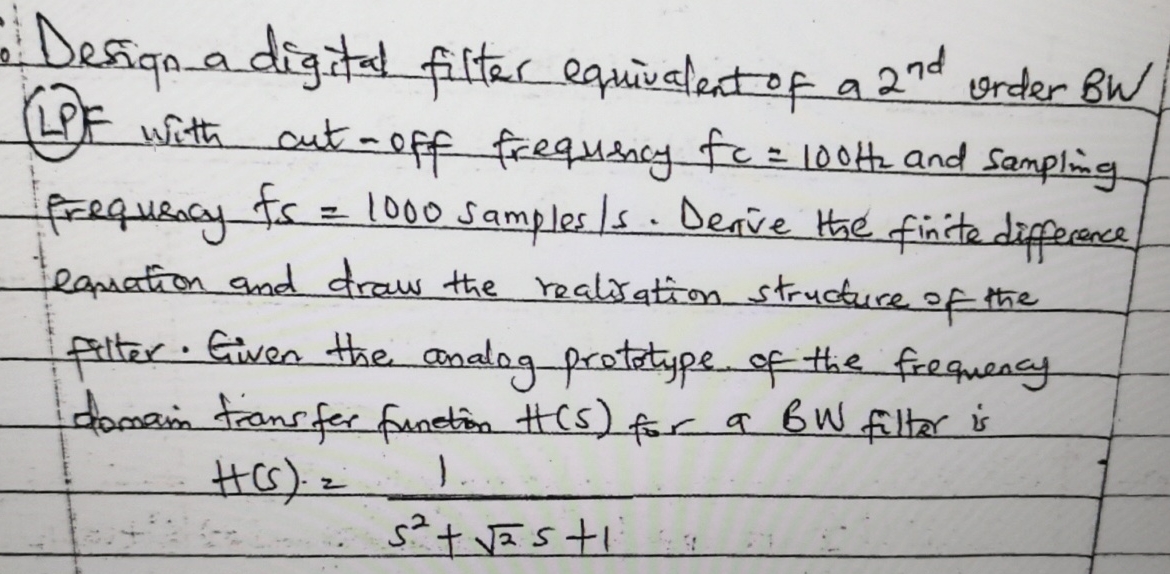 Design a digital filter equivalent of a 2nd order BW
LPF with cut-off frequency fc = 100Hz and sampling
frequency fs = 1000 samples/s. Derive the finite difference
equation and draw the realisation structure of the
filter. Given the analog prototype of the frequency
domain transfer function H(S) for a BW filter is
H(S) = 1
s² + √2 s + 1